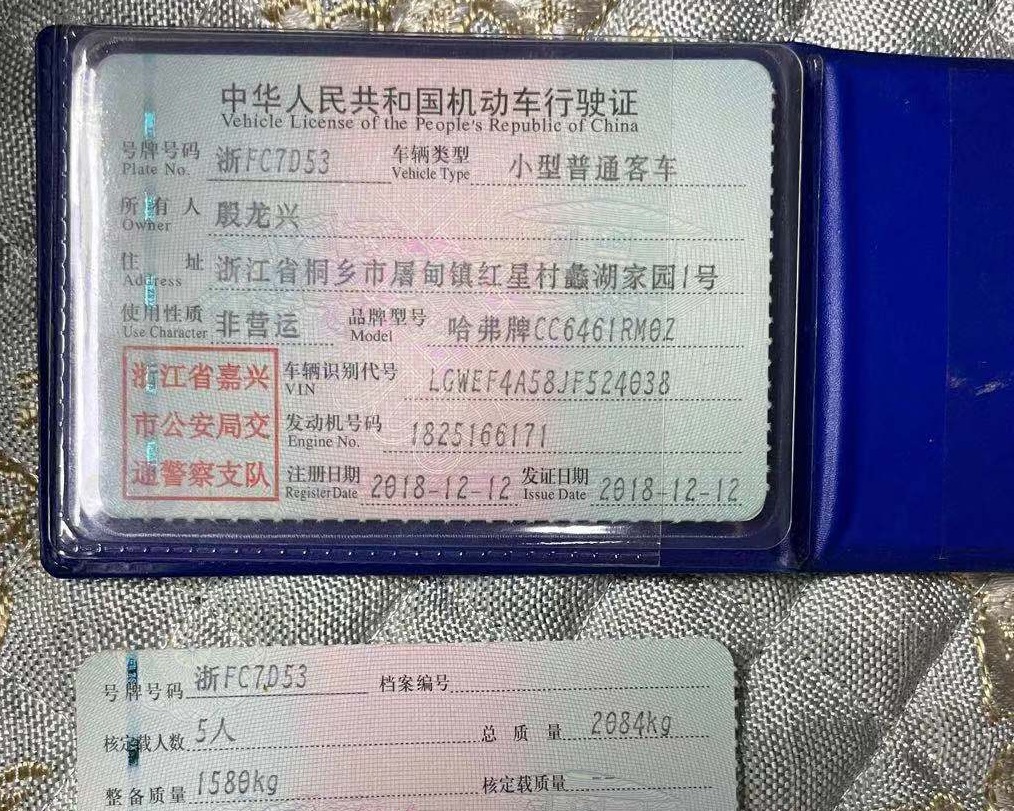 中华人民共和国机动车行驶证
Vehicle License of the People's Republic of China
号牌号码 浙FC7D53 车辆类型 小型普通客车
Plate No. Vehicle Type
所有人 殷龙兴
Owner
住址 浙江省桐乡市屠甸镇红星村蠡湖家园1号
Address
使用性质 非营运 品牌型号 哈弗牌CC6461RM0Z
Use Character Model
浙江省嘉兴
市公安局交
通警察支队
车辆识别代号 LGWEF4A58JF524038
VIN
发动机号码 1825166171
Engine No.
注册日期 2018-12-12 发证日期 2018-12-12
Register Date Issue Date
号牌号码 浙FC7D53 档案编号
核定载人数 5人 总质量 2084kg
整备质量 1580kg 核定载质量 --